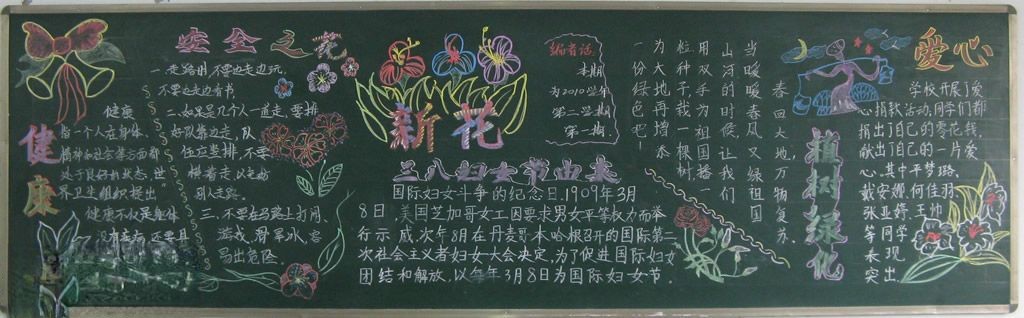 健康
健康
指一个人在身体、
精神和社会等方面都
处于良好的状态，世
界卫生组织提出
健康不仅是身体
没有疾病，还要具
安全之花
一、走路时不要边走边玩，
不要边走边看书
二、如果是几个人一道走，要排
好队靠边走，队
伍应竖排，不要
横着走以免妨
别人走路。
三、不要在马路上打闹、
游戏、滑旱冰，容
易出危险
新花
编者话
本期
为2010学年
第二学期
第一期
三八妇女节由来
国际妇女斗争的纪念日，1909年3月
8日，美国芝加哥女工因要求男女平等权力而举
行示威，次年8月在丹麦哥本哈根召开的国际第二
次社会主义者妇女大会决定，为了促进国际妇女
团结和解放，以每年3月8日为国际妇女节。
植树绿化
春回大地，万物复苏，
当暖暖春风又绿祖国
山河的时候，让我们
用双手为祖国署一
粒种，再栽一棵树
为大地子我增添
一份绿色吧！
爱心
学校开展了爱
心捐款活动，同学们都
捐出了自己的零花钱，
献出了自己的一片爱
心。其中平梦路、
戴安娜、何佳羽、
张亚婷、王帅
等同学
表现
突出。